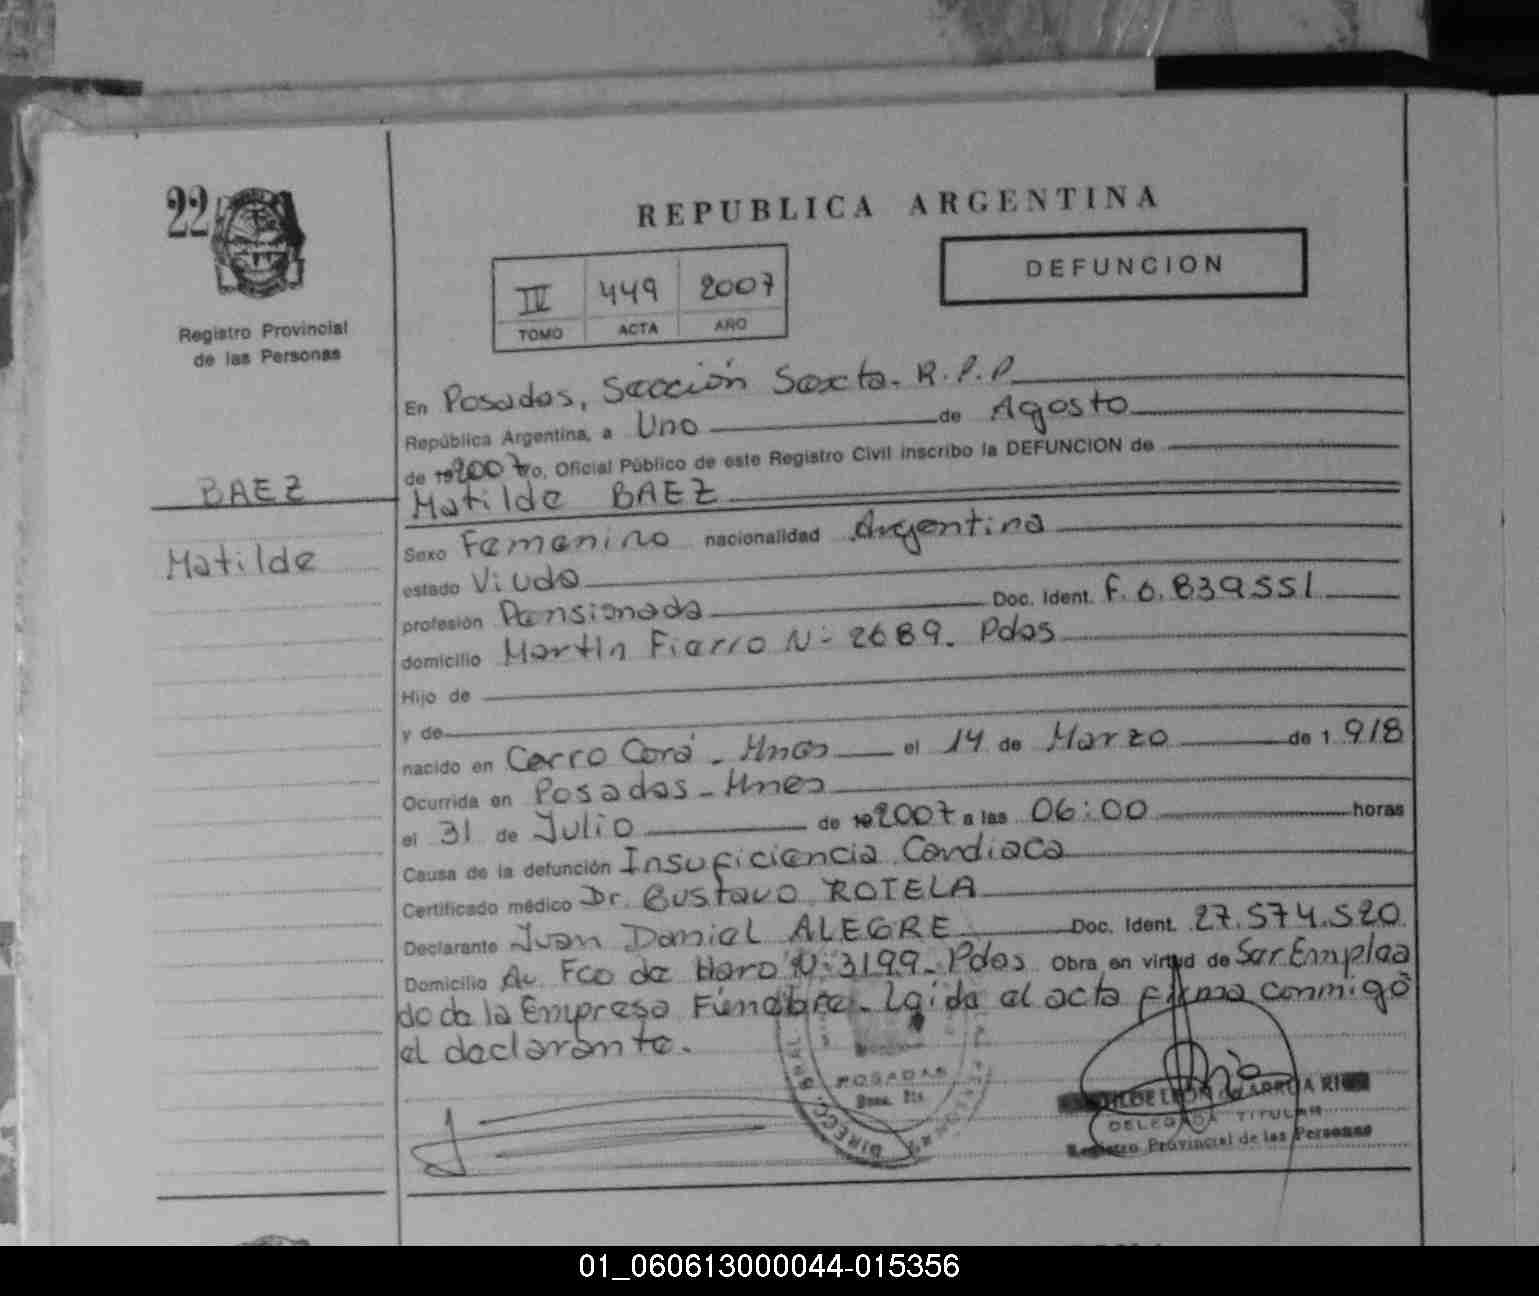 22
Registro Provincial
de las Personas
REPUBLICA ARGENTINA
DEFUNCION
IV 449 2007
TOMO ACTA AÑO
En Posadas, Sección Sexta. R.P.P
República Argentina, a Uno de Agosto
de 192007 Yo, Oficial Público de este Registro Civil inscribo la DEFUNCION de
BAEZ
Matilde BAEZ
Matilde
Sexo Femenino nacionalidad Argentina
estado Viuda
profesión Pensionada Doc. Ident. F. 6.839551
domicilio Martin Fierro Nº 2689. Pdas
Hijo de
y de
nacido en Cerro Corá - Mnes el 14 de Marzo de 1918
Ocurrida en Posadas - Mnes
el 31 de Julio de 192007 a las 06:00 horas
Causa de la defunción Insuficiencia Cardiaca
Certificado médico Dr. Gustavo ROTELA
Declarante Juan Daniel ALEGRE Doc. Ident. 27.574.520
Domicilio Av. Fco de Haro Nº 3199. Pdas Obra en virtud de Ser Emplea
do de la Empresa Fúnebre. Leida el acta firma conmigo
el declarante.
POSADAS
DIRECC. GRAL.
LEON de ARRUA
DELEGADA TITULAR
Registro Provincial de las Personas
01_060613000044-015356